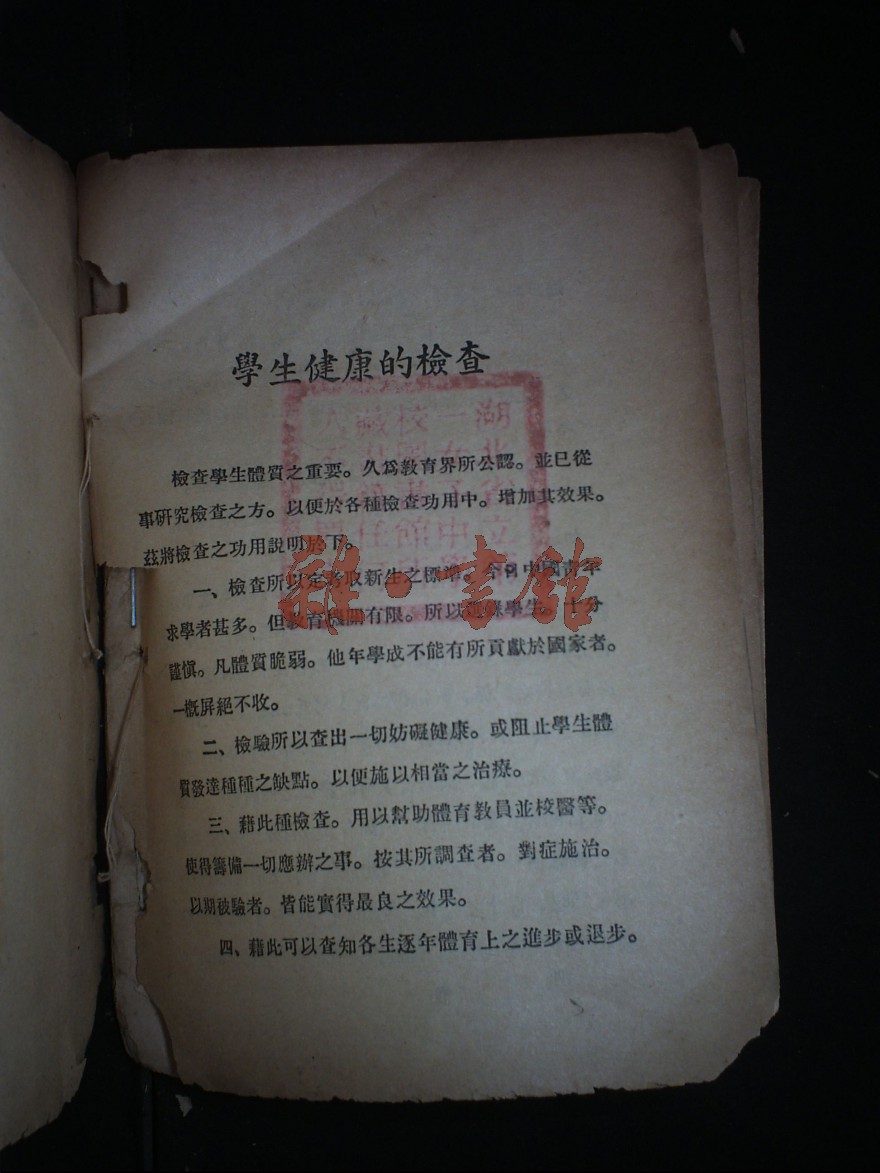 學生健康的檢查
檢查學生體質之重要。久爲教育界所公認。並已從
事硏究檢查之方。以便於各種檢查功用中。增加其效果。
茲將檢查之功用說明於下。
一、檢查所以定考取新生之標準。今日中國靑年
求學者甚多。但教育機關有限。所以選錄學生。十分
謹愼。凡體質脆弱。他年學成不能有所貢獻於國家者。
一槪屏絕不收。
二、檢驗所以查出一切妨礙健康。或阻止學生體
質發達種種之缺點。以便施以相當之治療。
三、藉此種檢查。用以幫助體育教員並校醫等。
使得籌備一切應辦之事。按其所調查者。對症施治。
以期被驗者。皆能實得最良之效果。
四、藉此可以查知各生逐年體育上之進步或退步。
雜·書館